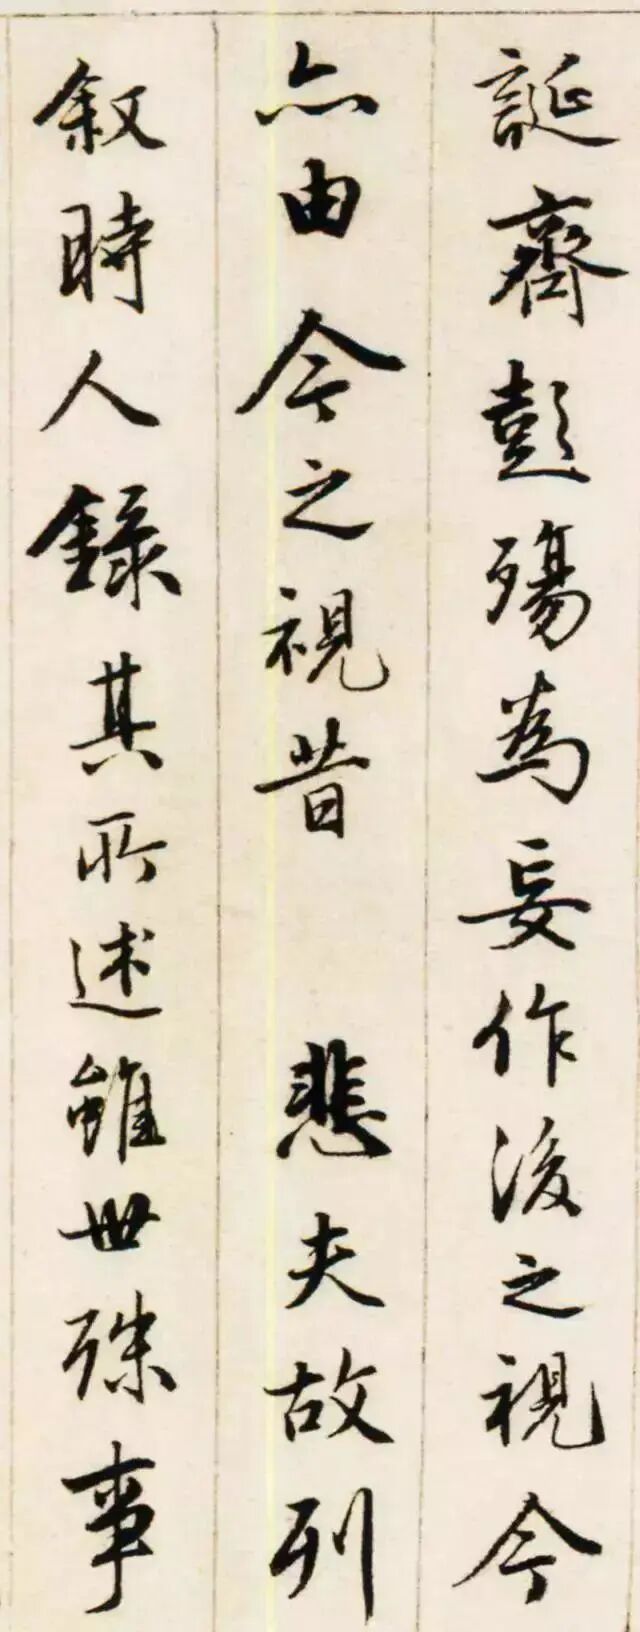 誕齊彭殤為妄作後之視今
亦由今之視昔 悲夫故列
敘時人錄其所述雖世殊事